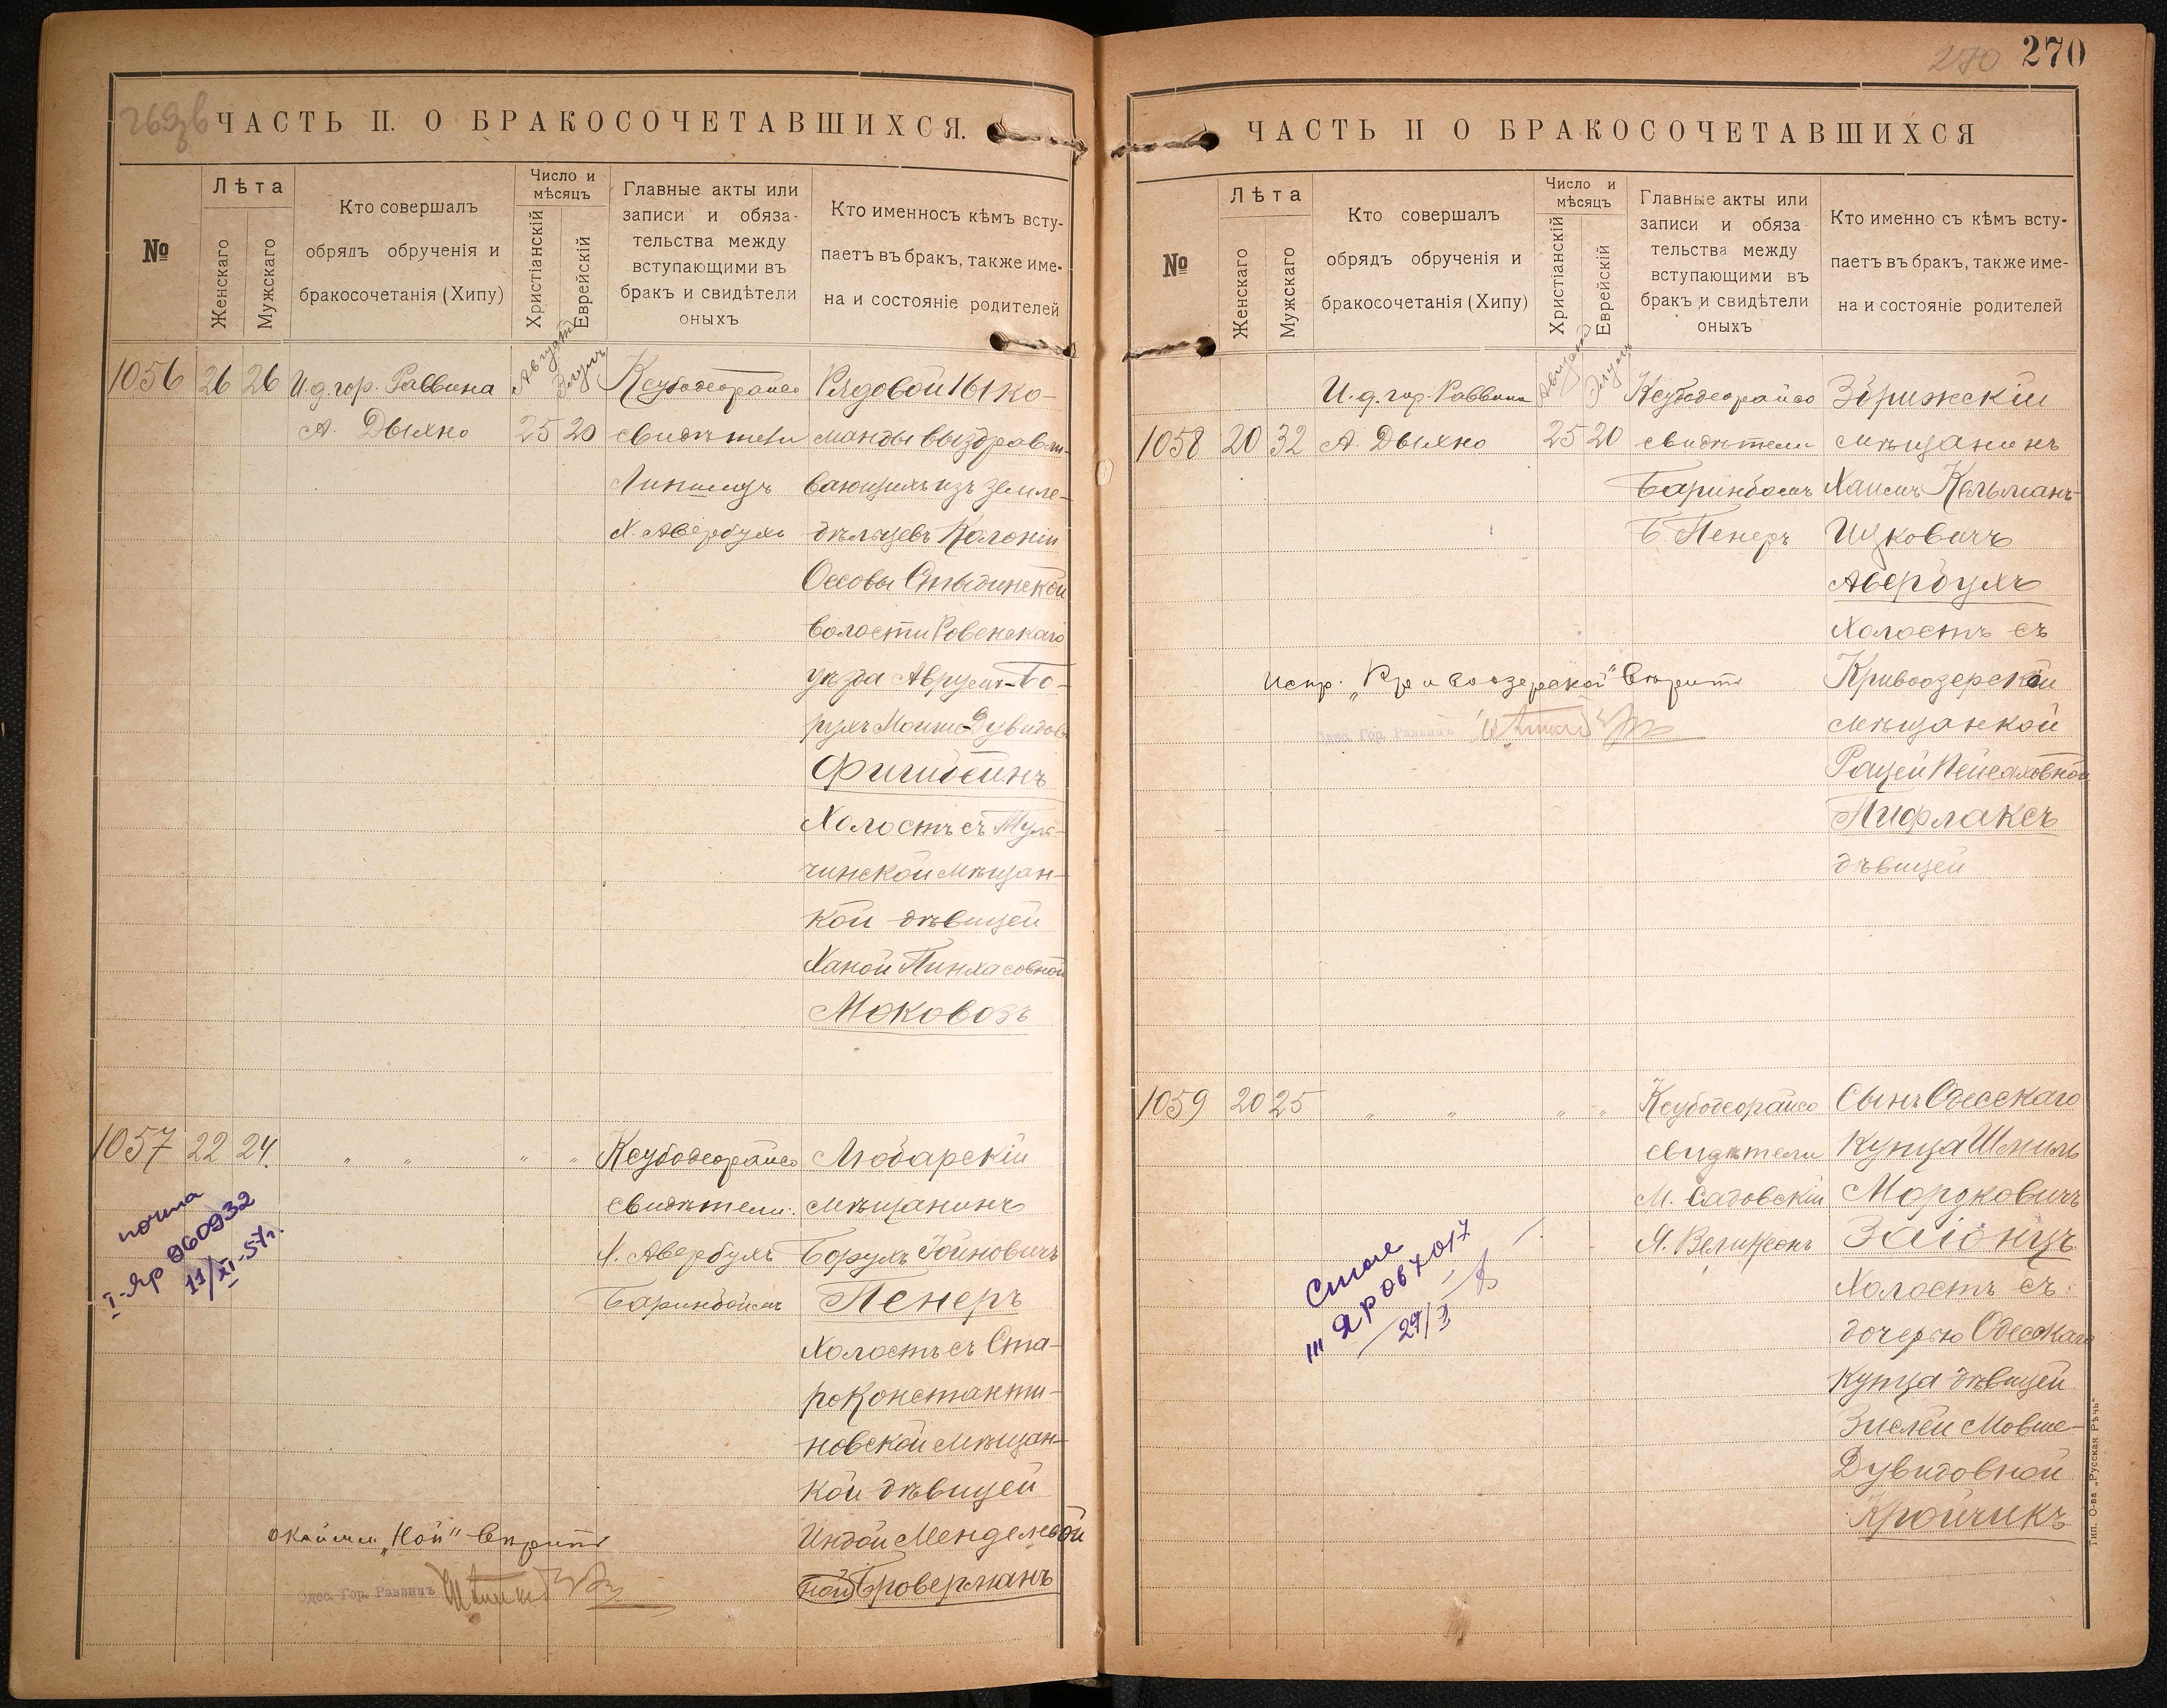 ЧАСТЬ II. О БРАКОСОЧЕТАВШИХСЯ.
№
Лѣта
Женскаго
Мужскаго
Кто совершалъ
обрядъ обрученія и
бракосочетанія (Хипу)
Число и
мѣсяцъ
Христіанскій
Еврейскій
Главные акты или
записи и обяза-
тельства между
вступающими въ
бракъ и свидѣтели
оныхъ
Кто именносъ кѣмъ всту-
паетъ въ бракъ, также име-
на и состояніе родителей
1056 26 26
И. д. гор. Раввина
А. Дыхно
Августъ
Элулъ
25 20
Ксубодеорайсо
свидѣтели
Липшицъ
Х. Авербухъ
Рядовой 161 ко-
манды выздоравли-
вающихъ изъ земле-
дѣльцевъ Колоніи
Оссовы
волости Ровенскаго
уѣзда Аврумъ-Бо-
рухъ Мошко-Дувидов
Фишбейнъ
Холостъ съ Туль-
чинской мѣщан-
кой дѣвицей
Ханой Пинхасовной
Моковозъ
1057 22 24.
" " " "
Ксубодеорайсо
свидѣтели:
Х. Авербухъ
Баринбоймъ
Любарскій
мѣщанинъ
Борухъ Іойновичъ
Пенеръ
Холостъ съ Ста-
роконстанти-
новской мѣщан-
кой дѣвицей
Индой Менделевой
ной Броверманъ
почта
I-Яр 060932
11/XI-57г.
окаймл. "ной" вѣрить
Одес. Гор. Раввинъ
270 270
ЧАСТЬ II О БРАКОСОЧЕТАВШИХСЯ
№
Лѣта
Женскаго
Мужскаго
Кто совершалъ
обрядъ обрученія и
бракосочетанія (Хипу)
Число и
мѣсяцъ
Христіанскій
Еврейскій
Главные акты или
записи и обяза
тельства между
вступающими въ
бракъ и свидѣтели
оныхъ
Кто именно съ кѣмъ всту-
паетъ въ бракъ, также име-
на и состояніе родителей
1058 20 32
И. д. гор. Раввина
А. Дыхно
Августъ
Элулъ
25 20
Ксубодеорайсо
свидѣтели
Баринбоймъ
Б. Пенеръ
Згрижскій
мѣщанинъ
Хаимъ Кельманъ-
Ицковичъ
Авербухъ
Холостъ съ
Кривоозерской
мѣщанкой
Рацей Пейсаховной
Пифлаксъ
дѣвицей
Испр. "Кривоозерской" вѣрить
Одес. Гор. Раввинъ
1059 20 25
" " " "
Ксубодеорайсо
свидѣтели
М. Садовскій
Я. Велинсонъ
Сынъ Одесскаго
Купца Шмиль
Мордковичъ
Заіонцъ
Холостъ съ
дочерью Одесскаго
Купца дѣвицей
Зислей Мовше-
Дувидовной
Кройчикъ
III Яр 067017
29/X
Тип. О-ва „Русская Рѣчь"